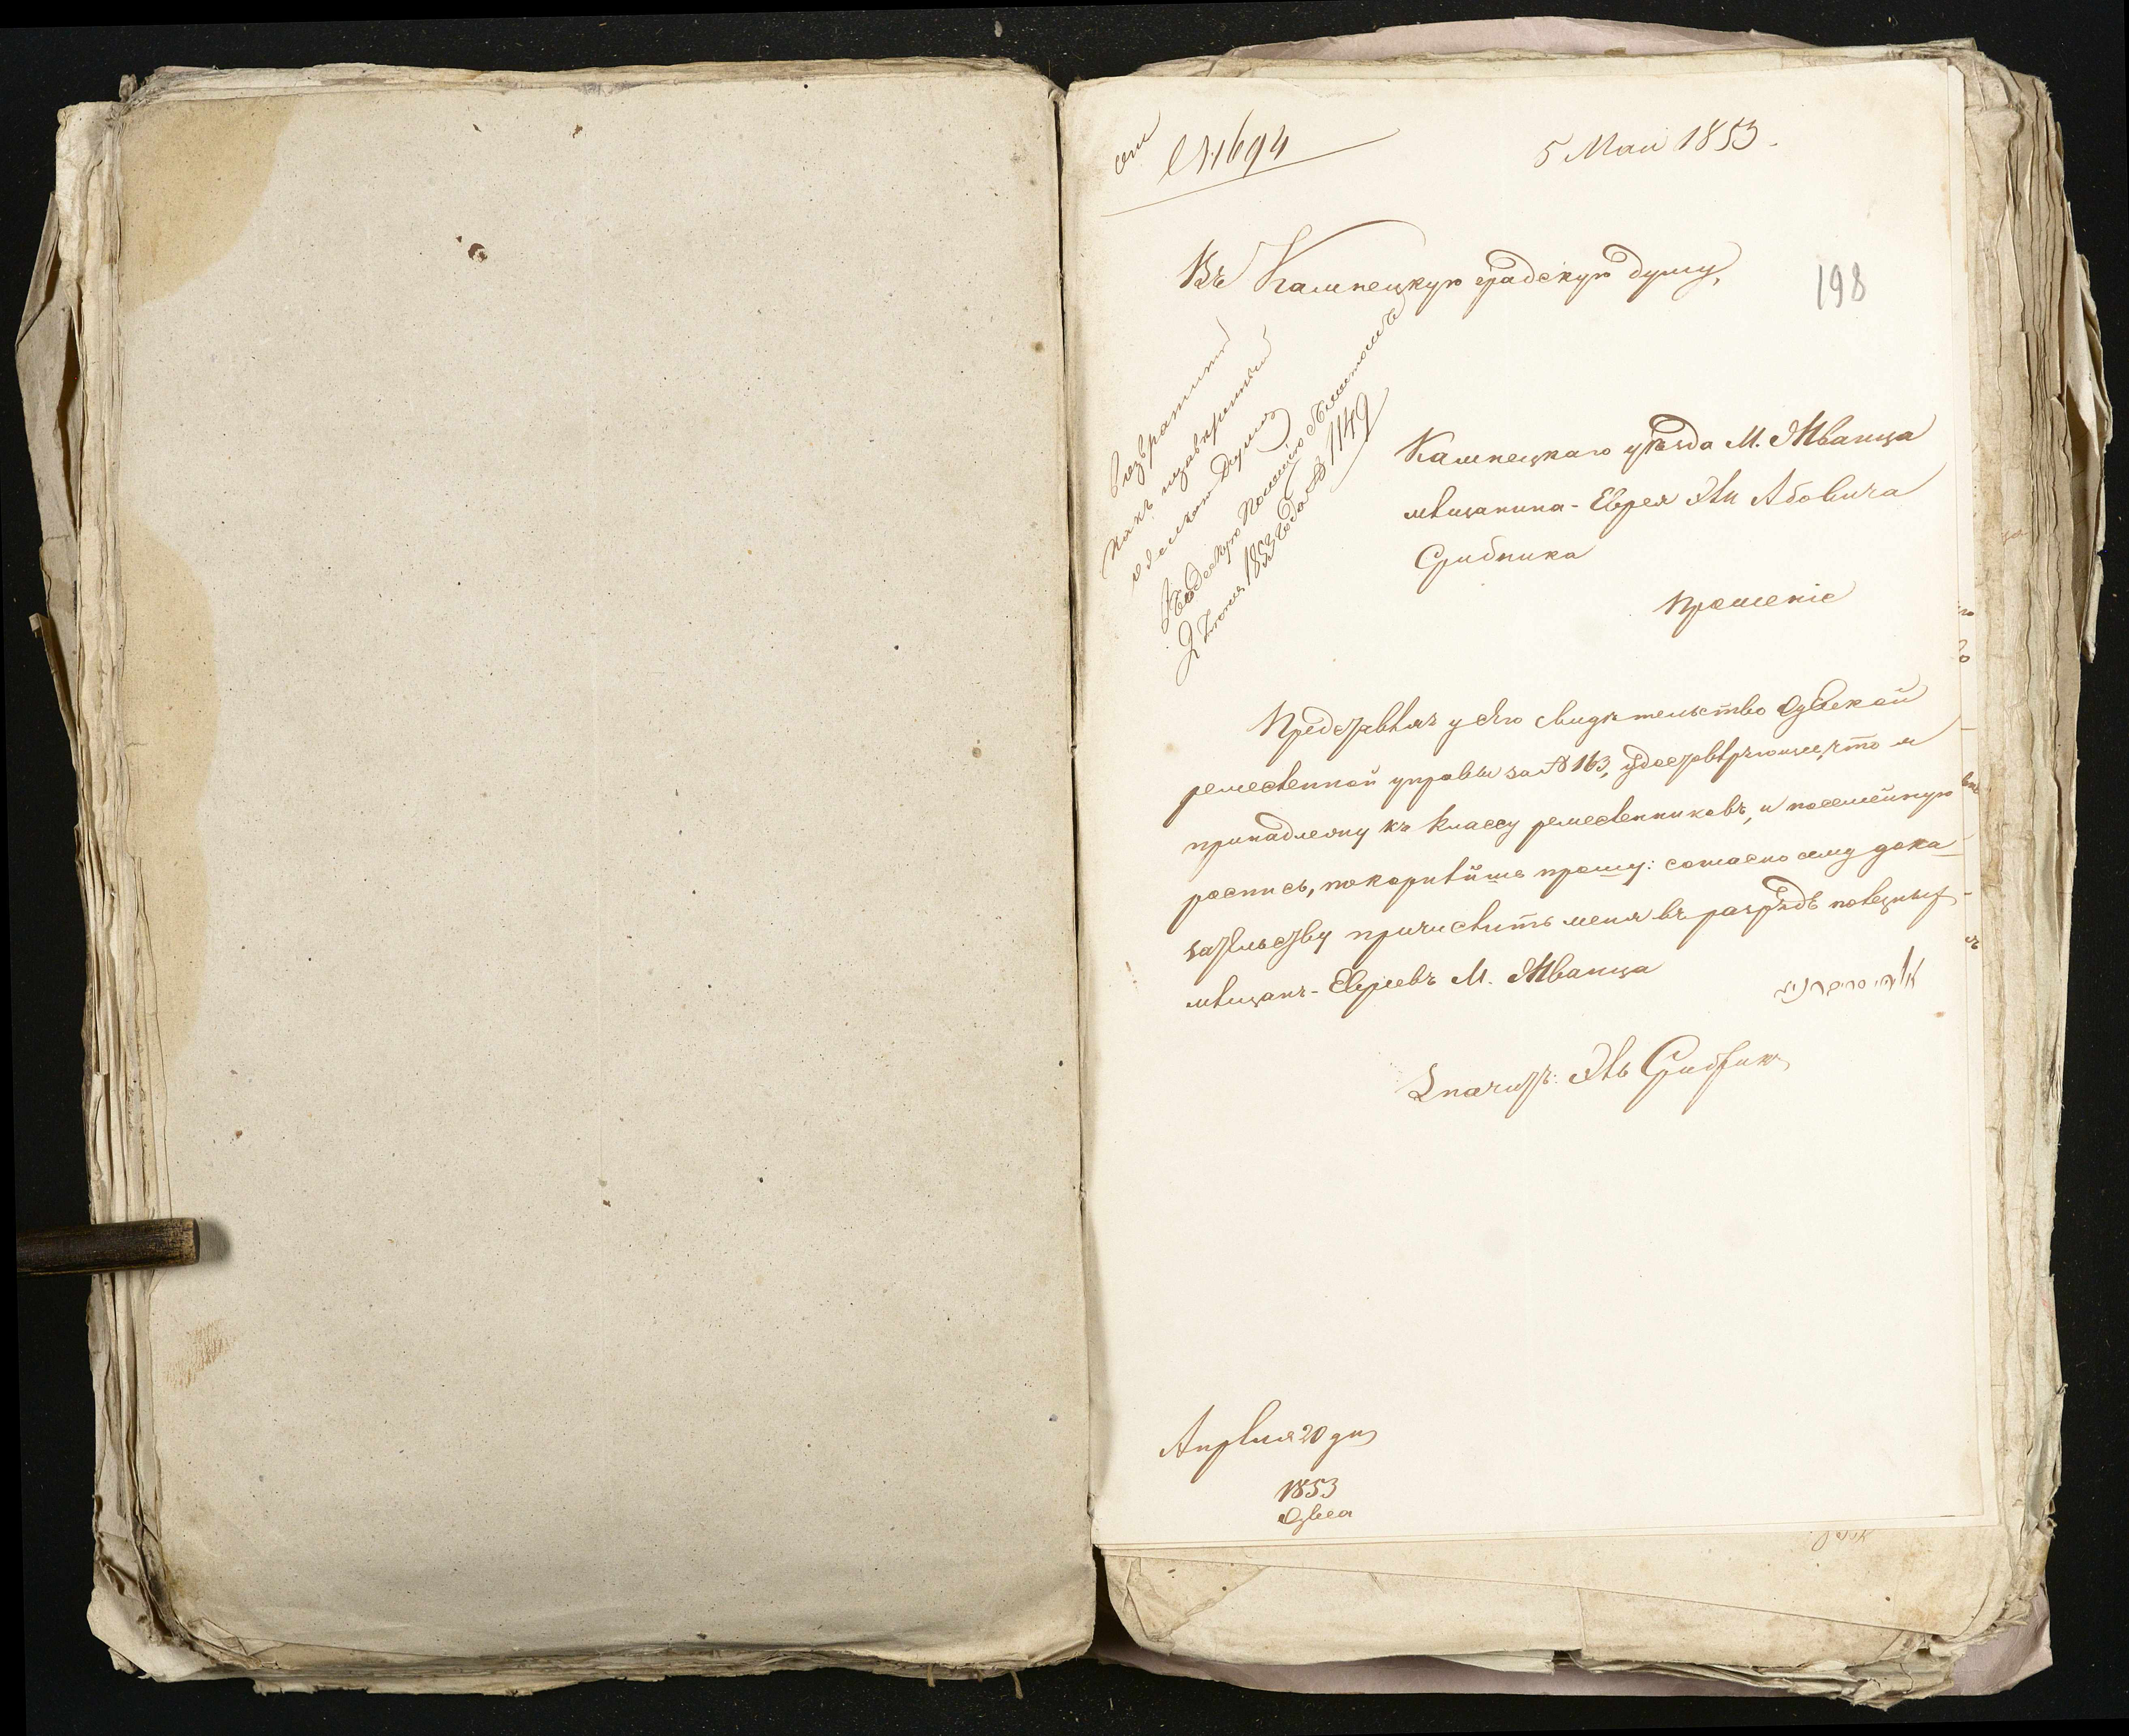 № 1694
5 Маи 1853.
Въ Каменецкую градскую думу,
198
Возвратить
какъ незаверенный
Думою
2 Іюня 1853 года № 1149
Каменецкаго уѣзда М. Жванца
мѣщанина-Еврея Эли Абовича
Срибника
Прошеніе
Представляя у сего свидѣтельство Одѣсской
ремесленной управы за № 163, удостовѣряющее, что я
принадлежу къ классу ремесленниковъ, и посемейную
роспись, покорнѣйше прошу: согласно сему дока-
зательству причислить меня въ разрядъ полезных
мѣщанъ-Евреевъ М. Жванца
Значитъ: Эль Срибник
Апрѣля 20 дня
1853
Одѣса